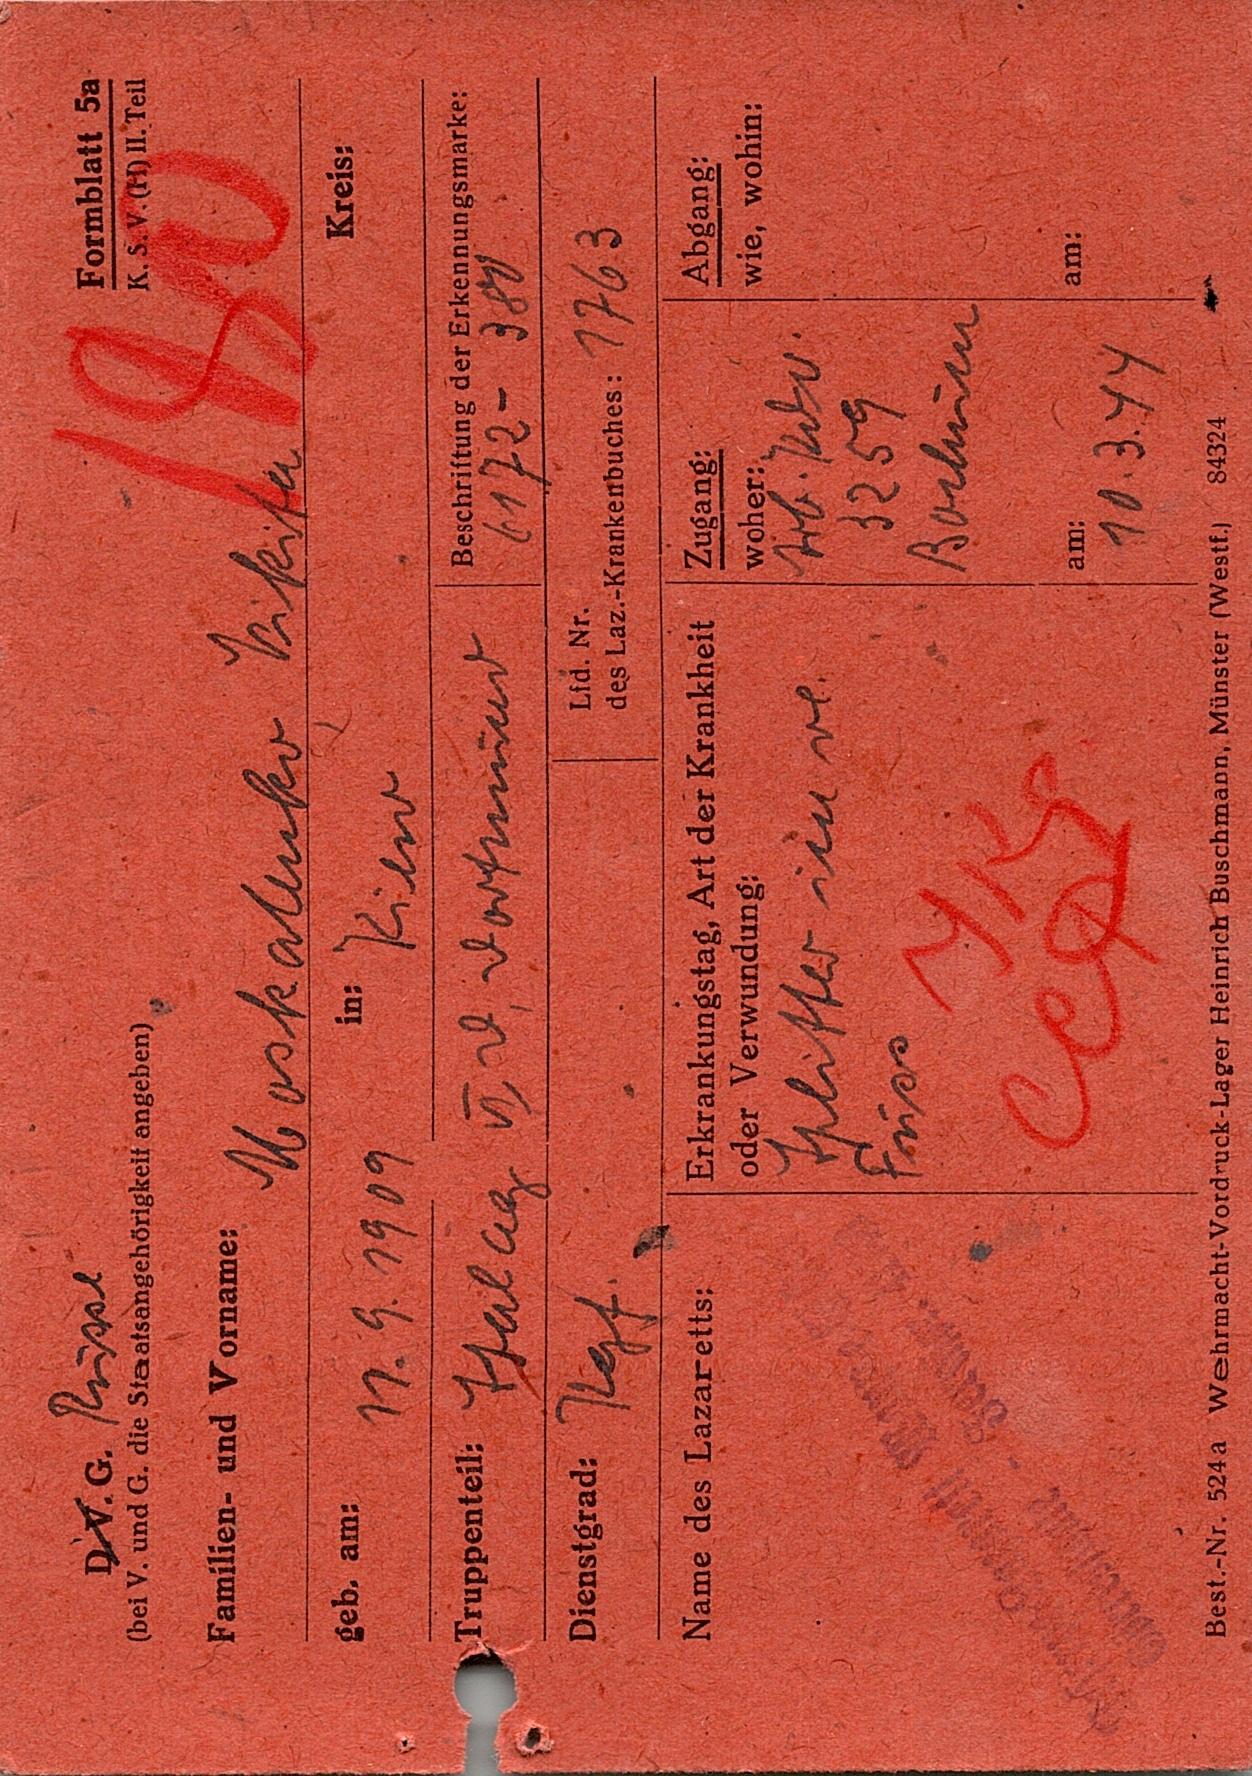 Formblatt 5a
K. S. V. (H) II. Teil
D. V. G. Russe
(bei V. und G. die Staatsangehörigkeit angeben)
Familien- und Vorname: Moskalenko Nikita
geb. am: 11.9.1909 in: Kiew Kreis:
Truppenteil: Stalag VI, D, Dortmund
Beschriftung der Erkennungsmarke:
6172-380
Dienstgrad: Kgf.
Lfd. Nr.
des Laz.-Krankenbuches: 1763
Name des Lazaretts:
Erkrankungstag, Art der Krankheit
oder Verwundung:
Splitter im re.
Fuss
Zugang:
woher:
Arb. Kdo.
3259
Bochum
am:
10.3.44
Abgang:
wie, wohin:
am:
Best.-Nr. 524a Wehrmacht-Vordruck-Lager Heinrich Buschmann, Münster (Westf.) 84324